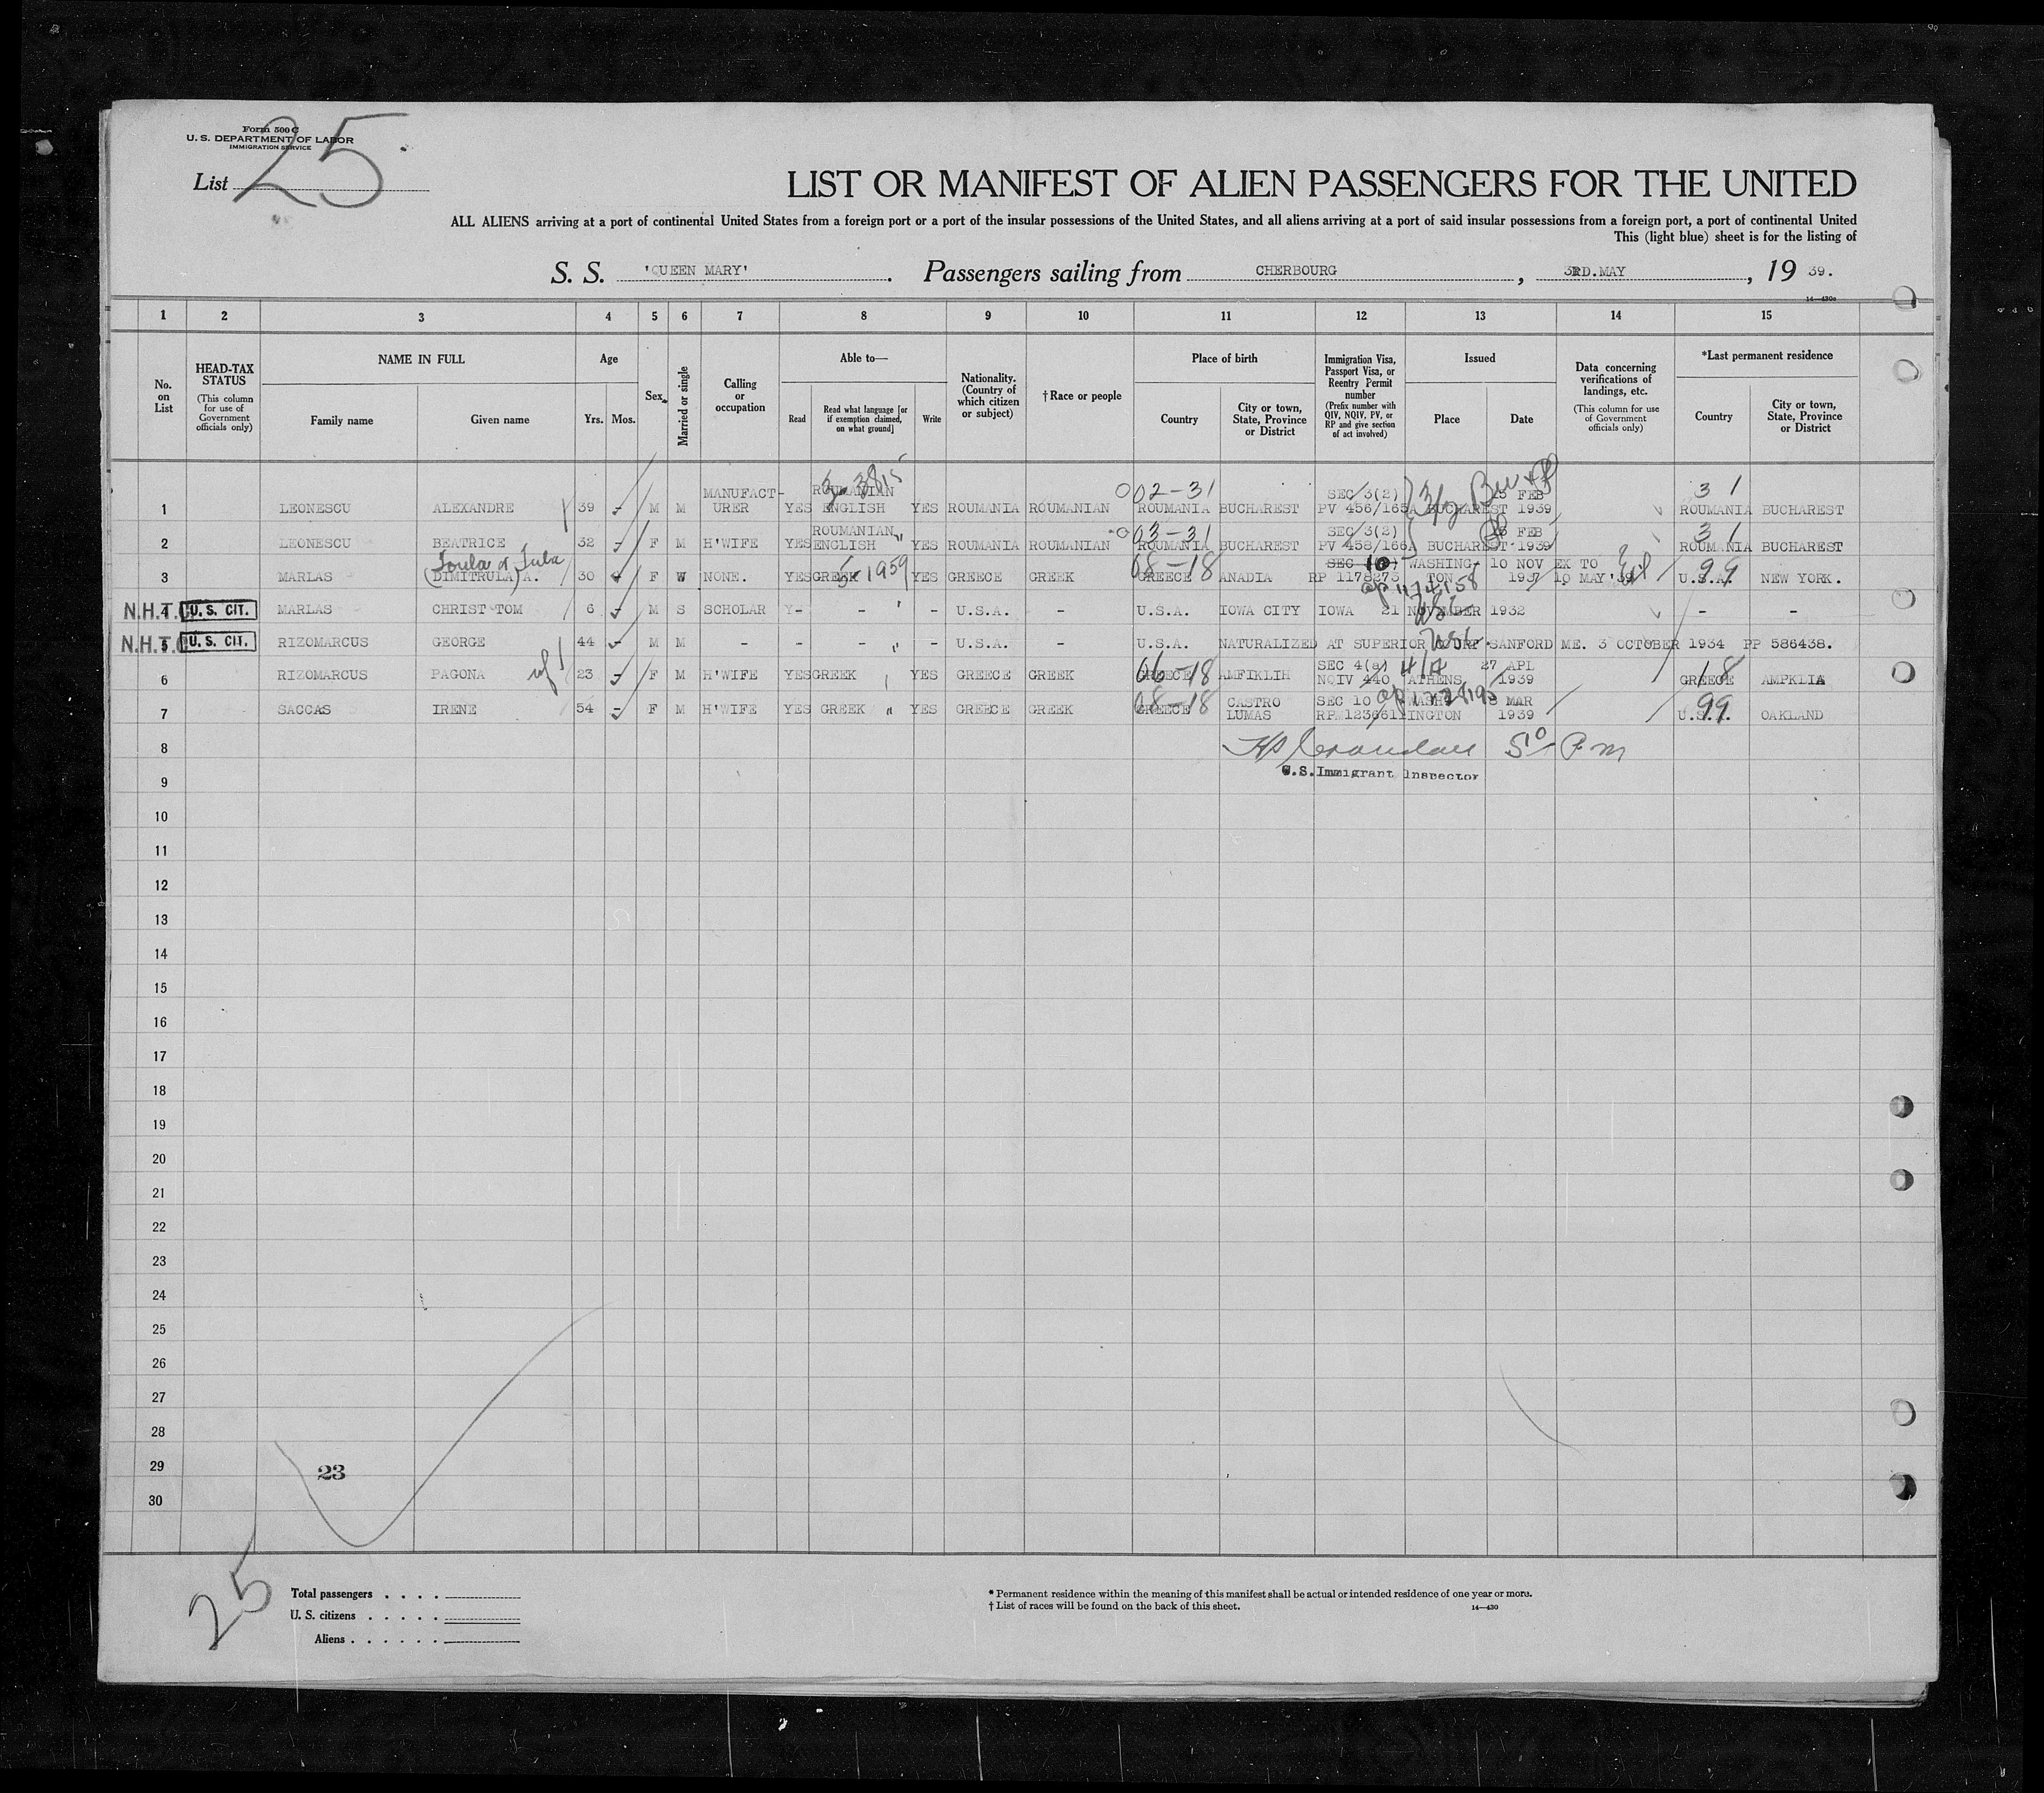 Form 500 C
U. S. DEPARTMENT OF LABOR
IMMIGRATION SERVICE
List 25
LIST OR MANIFEST OF ALIEN PASSENGERS FOR THE UNITED
ALL ALIENS arriving at a port of continental United States from a foreign port or a port of the insular possessions of the United States, and all aliens arriving at a port of said insular possessions from a foreign port, a port of continental United
This (light blue) sheet is for the listing of
S. S. 'QUEEN MARY'. Passengers sailing from CHERBOURG, 3RD.MAY, 19 39.
14—430c
1 2 3 4 5 6 7 8 9 10 11 12 13 14 15
No. on List
HEAD-TAX STATUS (This column for use of Government officials only)
NAME IN FULL
Family name Given name
Age
Yrs. Mos.
Sex
Married or single
Calling or occupation
Able to—
Read
Read what language [or if exemption claimed, on what ground]
Write
Nationality. (Country of which citizen or subject)
†Race or people
Place of birth
Country City or town, State, Province or District
Immigration Visa, Passport Visa, or Reentry Permit number (Prefix number with QIV, NQIV, PV, or RP and give section of act involved)
Issued
Place Date
Data concerning verifications of landings, etc. (This column for use of Government officials only)
*Last permanent residence
Country City or town, State, Province or District
1 LEONESCU ALEXANDRE 39 - M M MANUFACT-URER YES ROUMANIAN ENGLISH YES ROUMANIA ROUMANIAN 02-31 ROUMANIA BUCHAREST SEC 3(2) PV 456/165A BUCHAREST FEB 1939 31 ROUMANIA BUCHAREST
2 LEONESCU BEATRICE 32 - F M H'WIFE YES ROUMANIAN ENGLISH " YES ROUMANIA ROUMANIAN 03-31 ROUMANIA BUCHAREST SEC 3(2) PV 458/166A BUCHAREST FEB 1939 31 ROUMANIA BUCHAREST
3 MARLAS Toula or Tula (DIMITRULA) A. 30 - F W NONE. YES GREEK 5-1959 YES GREECE GREEK 08-18 GREECE ANADIA SEC 10 RP 1178273 WASHINGTON 10 NOV 1937 EX TO 10 MAY '39 99 U.S.A. NEW YORK.
N.H.T. 4 U. S. CIT. MARLAS CHRIST TOM 6 - M S SCHOLAR Y- - " - U.S.A. - U.S.A. IOWA CITY IOWA 21 NOVEMBER 1932 - -
N.H.T. 5 U. S. CIT. RIZOMARCUS GEORGE 44 - M M - - - " - U.S.A. - U.S.A. NATURALIZED AT SUPERIOR COURT SANFORD ME. 3 OCTOBER 1934 PP 586438.
6 RIZOMARCUS PAGONA wf 23 - F M H'WIFE YES GREEK YES GREECE GREEK 06-18 GREECE AMFIKLIH SEC 4(a) NQIV 440 ATHENS 27 APL 1939 18 GREECE AMPKLIA
7 SACCAS IRENE 54 - F M H'WIFE YES GREEK " YES GREECE GREEK 08-18 GREECE CASTRO LUMAS SEC 10 RP 1236611 WASHINGTON 8 MAR 1939 99 U.S.A. OAKLAND
8
U.S. Immigrant Inspector
9
10
11
12
13
14
15
16
17
18
19
20
21
22
23
24
25
26
27
28
29 23
30
25
Total passengers . . . .
U. S. citizens . . . . .
Aliens . . . . . .
* Permanent residence within the meaning of this manifest shall be actual or intended residence of one year or more.
† List of races will be found on the back of this sheet. 14—430